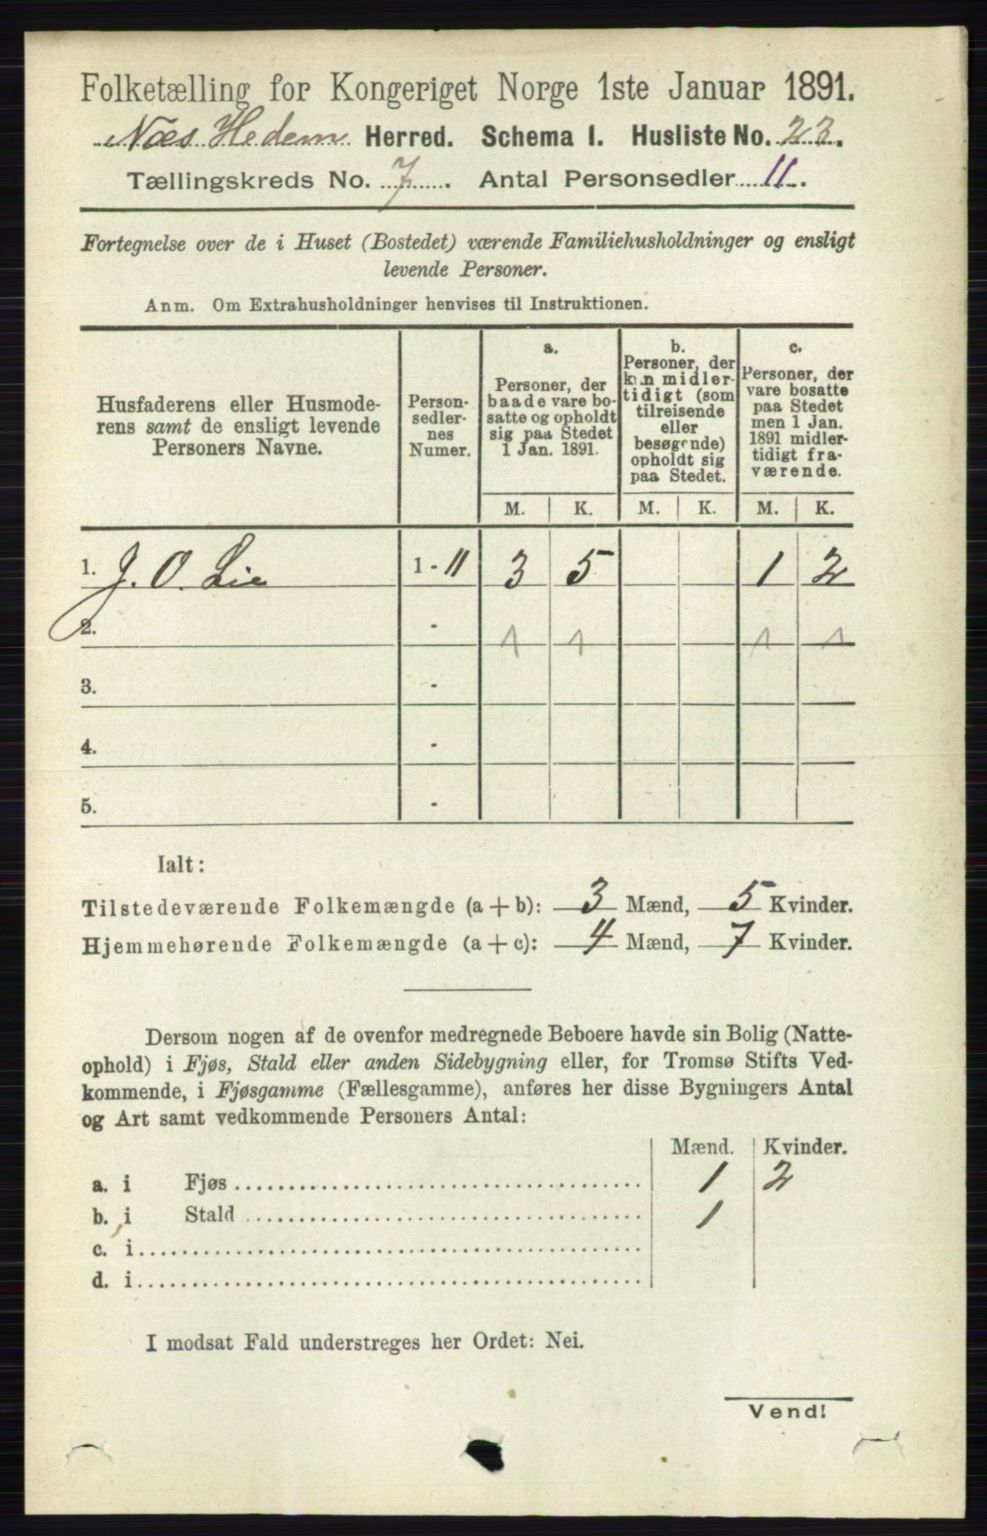 Folketælling for Kongeriget Norge 1ste Januar 1891.
Næs Hedem Herred. Schema I. Husliste No. 23.
Tællingskreds No. 7. Antal Personsedler 11.
Fortegnelse over de i Huset (Bostedet) værende Familiehusholdninger og ensligt
levende Personer.
Anm. Om Extrahusholdninger henvises til Instruktionen.
Husfaderens eller Husmode-
rens samt de ensligt levende
Personers Navne.
Person-
sedler-
nes
Numer.
a.
Personer, der
baade vare bo-
satte og opholdt
sig paa Stedet
1 Jan. 1891.
b.
Personer, der
kun midler-
tidigt (som
tilreisende
eller
besøgende)
opholdt sig
paa Stedet.
c.
Personer, der
vare bosatte
paa Stedet
men 1 Jan.
1891 midler-
tidigt fra-
værende.
M. K. M. K. M. K.
1. J. O. Lie 1 - 11 3 5 1 2
2. -
3. -
4. -
5. -
Ialt:
Tilstedeværende Folkemængde (a + b): 3 Mænd, 5 Kvinder.
Hjemmehørende Folkemængde (a + c): 4 Mænd, 7 Kvinder.
Dersom nogen af de ovenfor medregnede Beboere havde sin Bolig (Natte-
ophold) i Fjøs, Stald eller anden Sidebygning eller, for Tromsø Stifts Ved-
kommende, i Fjøsgamme (Fællesgamme), anføres her disse Bygningers Antal
og Art samt vedkommende Personers Antal:
Mænd. Kvinder.
a. i Fjøs 1 2
b. i Stald 1
c. i
d. i
I modsat Fald understreges her Ordet: Nei.
Vend!